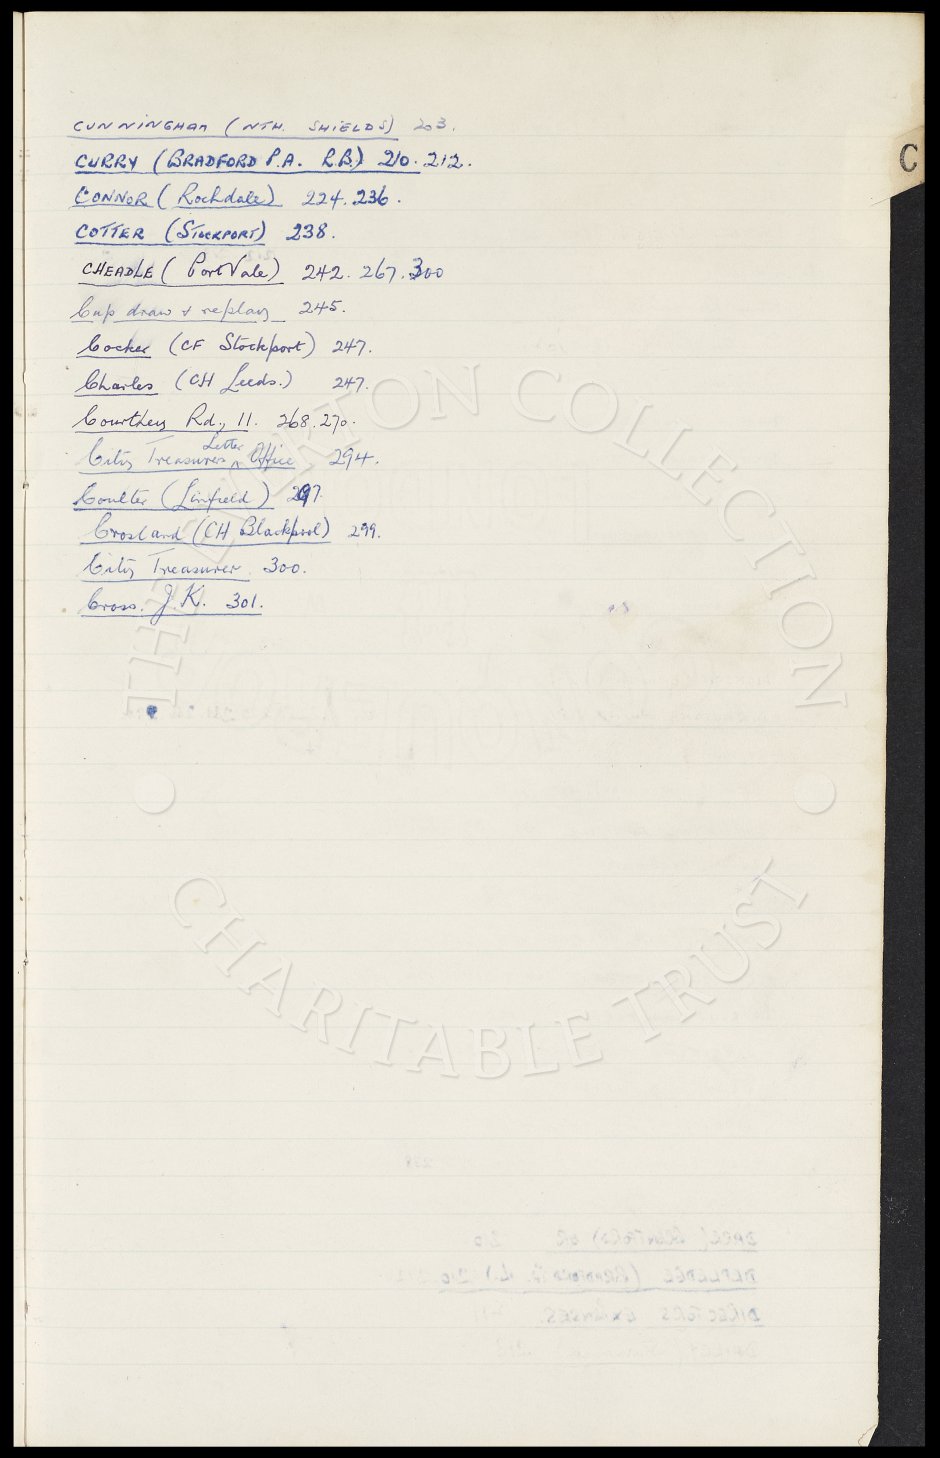 CUNNINGHAM (NTH. SHIELDS) 203.
CURRY (BRADFORD P.A. R.B) 210. 212.
C
CONNOR (Rochdale) 224. 236.
COTTER (STOCKPORT) 238.
CHEADLE (Port Vale) 242. 267. 300
Cup draw & replay 245.
Cocker (CF Stockport) 247.
Charles (CH Leeds.) 247.
Courtney Rd., 11. 268. 270.
City Treasurers Letter Office 294.
Coulter (Linfield) 297.
Crosland (CH Blackpool) 299.
City Treasurer 300.
Cross. J.K. 301.
THE EVERTON COLLECTION
CHARITABLE TRUST